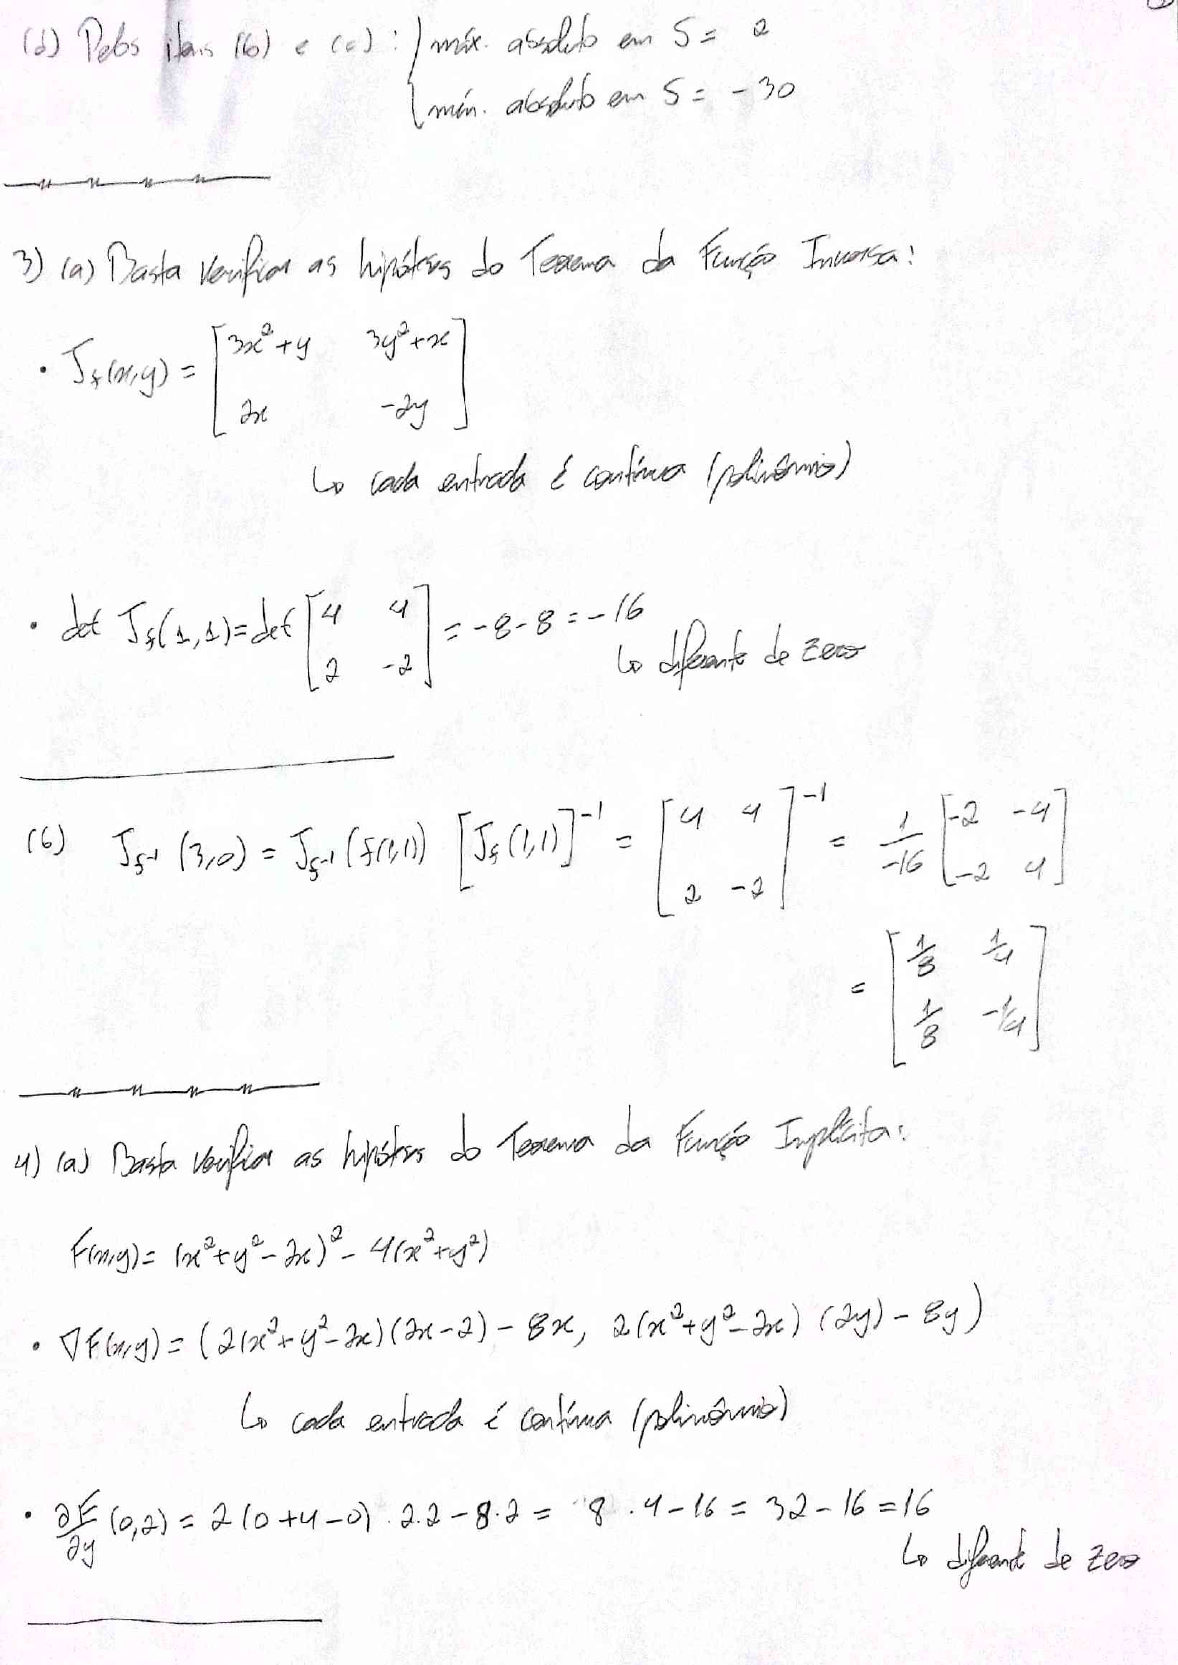 (d) Pelos itens (b) e (c): { máx. absoluto em S = 2
mín. absoluto em S = -30
3) (a) Basta verificar as hipóteses do Teorema da Função Inversa:
• J_f(x,y) = [ 3x²+y 3y²+x
2x -2y ]
↳ cada entrada é contínua (polinômio)
• det J_f(1,1) = det [ 4 4
2 -2 ] = -8-8 = -16
↳ diferente de zero
(b) J_{f⁻¹}(3,0) = J_{f⁻¹}(f(1,1)) [J_f(1,1)]⁻¹ = [ 4 4
2 -2 ]⁻¹ = 1/-16 [ -2 -4
-2 4 ]
= [ 1/8 1/4
1/8 -1/4 ]
4) (a) Basta verificar as hipóteses do Teorema da Função Implícita:
F(x,y) = (x²+y²-2x)² - 4(x²+y²)
• ∇F(x,y) = (2(x²+y²-2x)(2x-2) - 8x, 2(x²+y²-2x)(2y) - 8y)
↳ cada entrada é contínua (polinômio)
• ∂F/∂y (0,2) = 2(0+4-0) 2.2 - 8.2 = 8 . 4 - 16 = 32 - 16 = 16
↳ diferente de zero